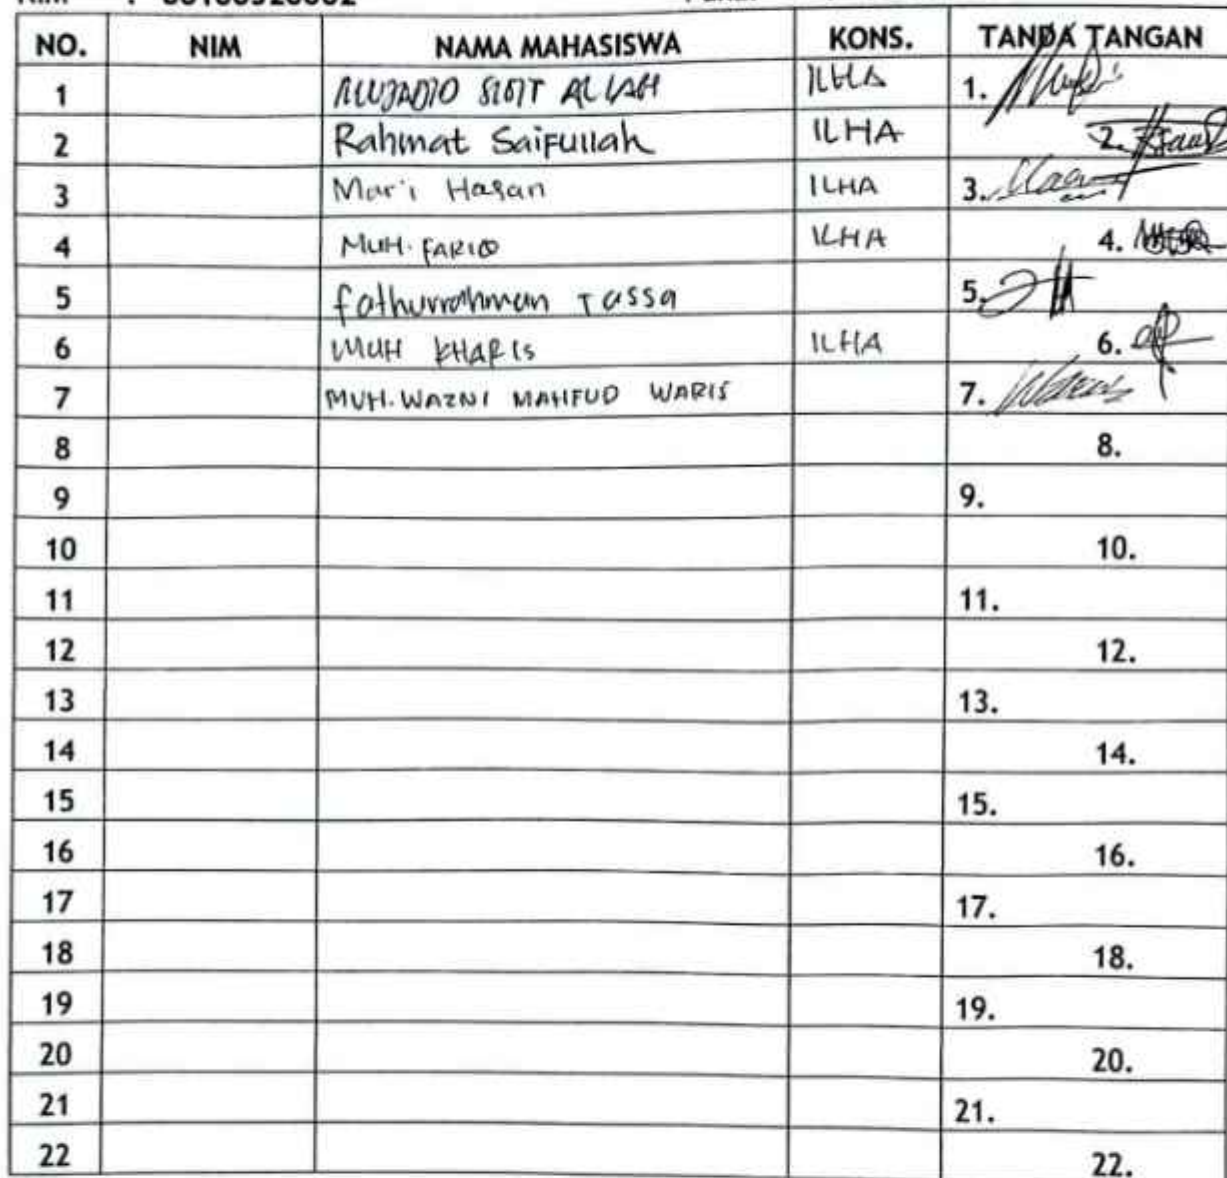 NO. NIM NAMA MAHASISWA KONS. TANDA TANGAN
1 ALLAH ILHA 1.
2 Rahmat Saifullah ILHA 2.
3 Mar'i Hasan ILHA 3.
4 MUH. FARID ILHA 4.
5 fathurrahman Tassa 5.
6 MUH KHARIS ILHA 6.
7 MUH. WAZNI MAHFUD WARIS 7.
8 8.
9 9.
10 10.
11 11.
12 12.
13 13.
14 14.
15 15.
16 16.
17 17.
18 18.
19 19.
20 20.
21 21.
22 22.